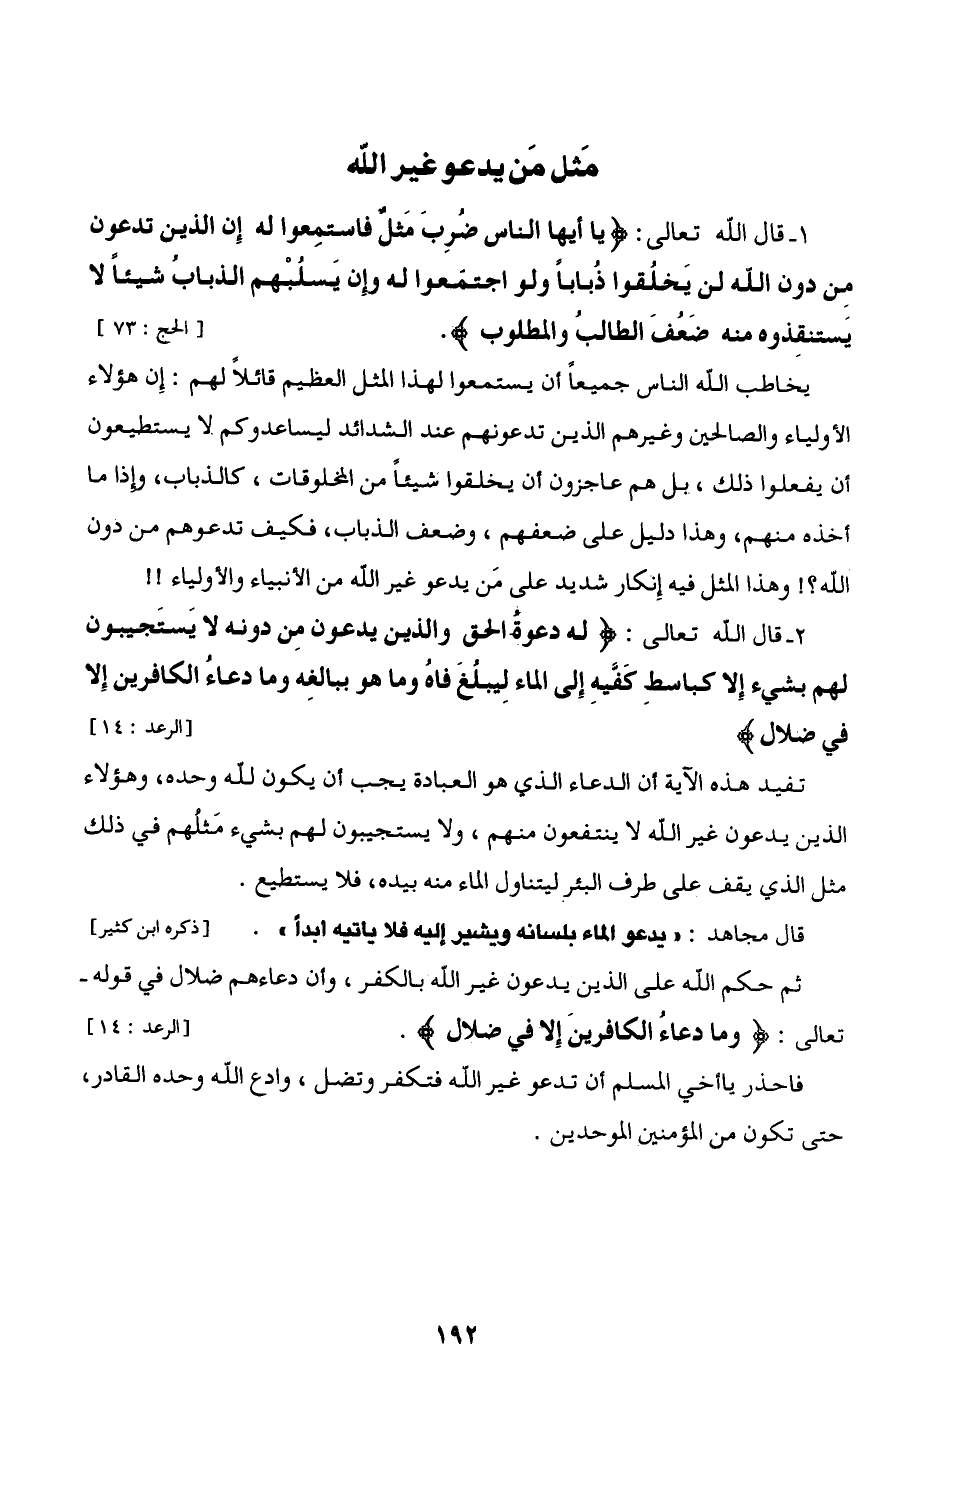 مَثل مَن يدعو غير الله
١ـ قال الله تعالى : ﴿ يا أيها الناس ضُرِبَ مَثلٌ فاستمِعوا له إن الذين تدعون
مِن دون الله لن يَخلُقوا ذُباباً ولو اجتمَعوا له وإن يَسلُبْهم الذبابُ شيئاً لا
يَستنقِذوه منه ضَعُفَ الطالبُ والمطلوب ﴾ . [ الحج : ٧٣ ]
يخاطب الله الناس جميعاً أن يستمعوا لهذا المثل العظيم قائلاً لهم : إن هؤلاء
الأولياء والصالحين وغيرهم الذين تدعونهم عند الشدائد ليساعدوكم لا يستطيعون
أن يفعلوا ذلك ، بل هم عاجزون أن يخلقوا شيئاً من المخلوقات ، كالذباب، وإذا ما
أخذه منهم، وهذا دليل على ضعفهم ، وضعف الذباب، فكيف تدعوهم من دون
الله؟! وهذا المثل فيه إنكار شديد على مَن يدعو غير الله من الأنبياء والأولياء !!
٢ـ قال الله تعالى : ﴿ له دعوةُ الحق والذين يدعون مِن دونه لا يَستَجيبون
لهم بشيء إلا كباسطِ كَفَّيهِ إلى الماء لِيبلُغَ فاهُ وما هو ببالغِه وما دعاءُ الكافرين إلا
في ضلال ﴾ [الرعد : ١٤]
تفيد هذه الآية أن الدعاء الذي هو العبادة يجب أن يكون لله وحده، وهؤلاء
الذين يدعون غير الله لا ينتفعون منهم ، ولا يستجيبون لهم بشيء مَثلُهم في ذلك
مثل الذي يقف على طرف البئر ليتناول الماء منه بيده، فلا يستطيع .
قال مجاهد : « يدعو الماء بلسانه ويشير إليه فلا ياتيه ابداً » . [ذكره ابن كثير]
ثم حكم الله على الذين يدعون غير الله بالكفر ، وأن دعاءهم ضلال في قوله ـ
تعالى : ﴿ وما دعاءُ الكافرينَ إلا في ضلال ﴾ . [الرعد : ١٤]
فاحذر ياأخي المسلم أن تدعو غير الله فتكفر وتضل ، وادع الله وحده القادر،
حتى تكون من المؤمنين الموحدين .
١٩٢